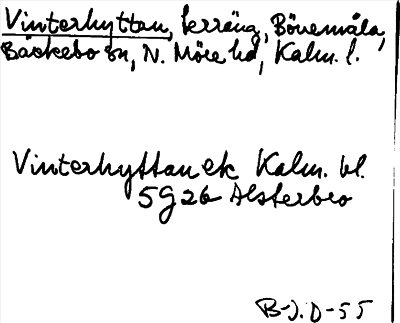 Vinterhyttan, terräng, Bövemåla,
Bäckebo sn, N. Möre hd, Kalm. l.
Vinterhyttan ek Kalm. bl.
5G26 Alsterbro
B-J. D-55